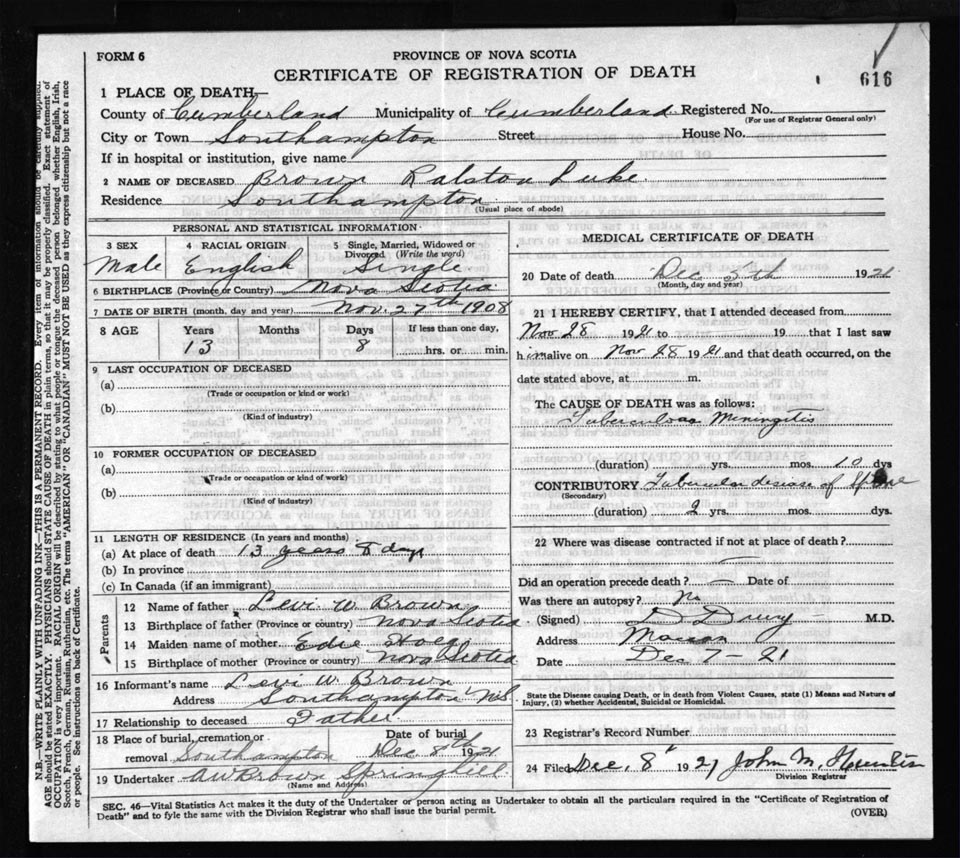 FORM 6
PROVINCE OF NOVA SCOTIA
CERTIFICATE OF REGISTRATION OF DEATH
616
1 PLACE OF DEATH—
County of Cumberland Municipality of Cumberland Registered No.
(For use of Registrar General only)
City or Town Southampton Street House No.
If in hospital or institution, give name
2 NAME OF DECEASED Brown Ralston Luke
Residence Southampton
(Usual place of abode)
PERSONAL AND STATISTICAL INFORMATION
3 SEX Male
4 RACIAL ORIGIN English
5 Single, Married, Widowed or Divorced (Write the word) Single
6 BIRTHPLACE (Province or Country) Nova Scotia
7 DATE OF BIRTH (month, day and year) Nov. 27th 1908
8 AGE Years Months Days If less than one day,
13 8 hrs. or min.
9 LAST OCCUPATION OF DECEASED
(a)
(Trade or occupation or kind or work)
(b)
(Kind of industry)
10 FORMER OCCUPATION OF DECEASED
(a)
(Trade or occupation or kind of work)
(b)
(Kind of industry)
11 LENGTH OF RESIDENCE (In years and months)
(a) At place of death 13 years 8 days
(b) In province
(c) In Canada (if an immigrant)
Parents
12 Name of father Levi W Brown
13 Birthplace of father (Province or country) Nova Scotia
14 Maiden name of mother Edie Hoeg
15 Birthplace of mother (Province or country) Nova Scotia
16 Informant's name Levi W Brown
Address Southampton N.S.
17 Relationship to deceased Father
18 Place of burial, cremation or removal Southampton Date of burial Dec 8th 1921
19 Undertaker A W Brown Springhill
(Name and Address)
MEDICAL CERTIFICATE OF DEATH
20 Date of death Dec 5th 1921
(Month, day and year)
21 I HEREBY CERTIFY, that I attended deceased from
Nov 28 1921 to 19 that I last saw
him alive on Nov 28 1921 and that death occurred, on the
date stated above, at m.
The CAUSE OF DEATH was as follows:
Tuberculous Meningitis
(duration) yrs. mos. 10 dys
CONTRIBUTORY Tubercular disease of Spine
(Secondary)
(duration) 2 yrs. mos. dys.
22 Where was disease contracted if not at place of death?
Did an operation precede death? — Date of
Was there an autopsy? No
(Signed) M.D.
Address
Date Dec 7 - 21
State the Disease causing Death, or in death from Violent Causes, state (1) Means and Nature of Injury, (2) whether Accidental, Suicidal or Homicidal.
23 Registrar's Record Number
24 Filed Dec. 8 1921 John M.
Division Registrar
SEC. 46—Vital Statistics Act makes it the duty of the Undertaker or person acting as Undertaker to obtain all the particulars required in the "Certificate of Registration of
Death" and to fyle the same with the Division Registrar who shall issue the burial permit.
(OVER)
N.B.—WRITE PLAINLY WITH UNFADING INK—THIS IS A PERMANENT RECORD. Every item of information should be carefully supplied.
AGE should be stated EXACTLY. PHYSICIANS should STATE CAUSE OF DEATH in plain terms, so that it may be properly classified. Exact statement of
OCCUPATION is very important. RACIAL ORIGIN will be described by stating to what people or tongue the deceased person belonged whether English, Irish,
Scotch, French, German, Russian, Ruthenian, etc. The terms "AMERICAN" OR "CANADIAN" MUST NOT BE USED as they express citizenship but not a race
or people. See instructions on back of Certificate.